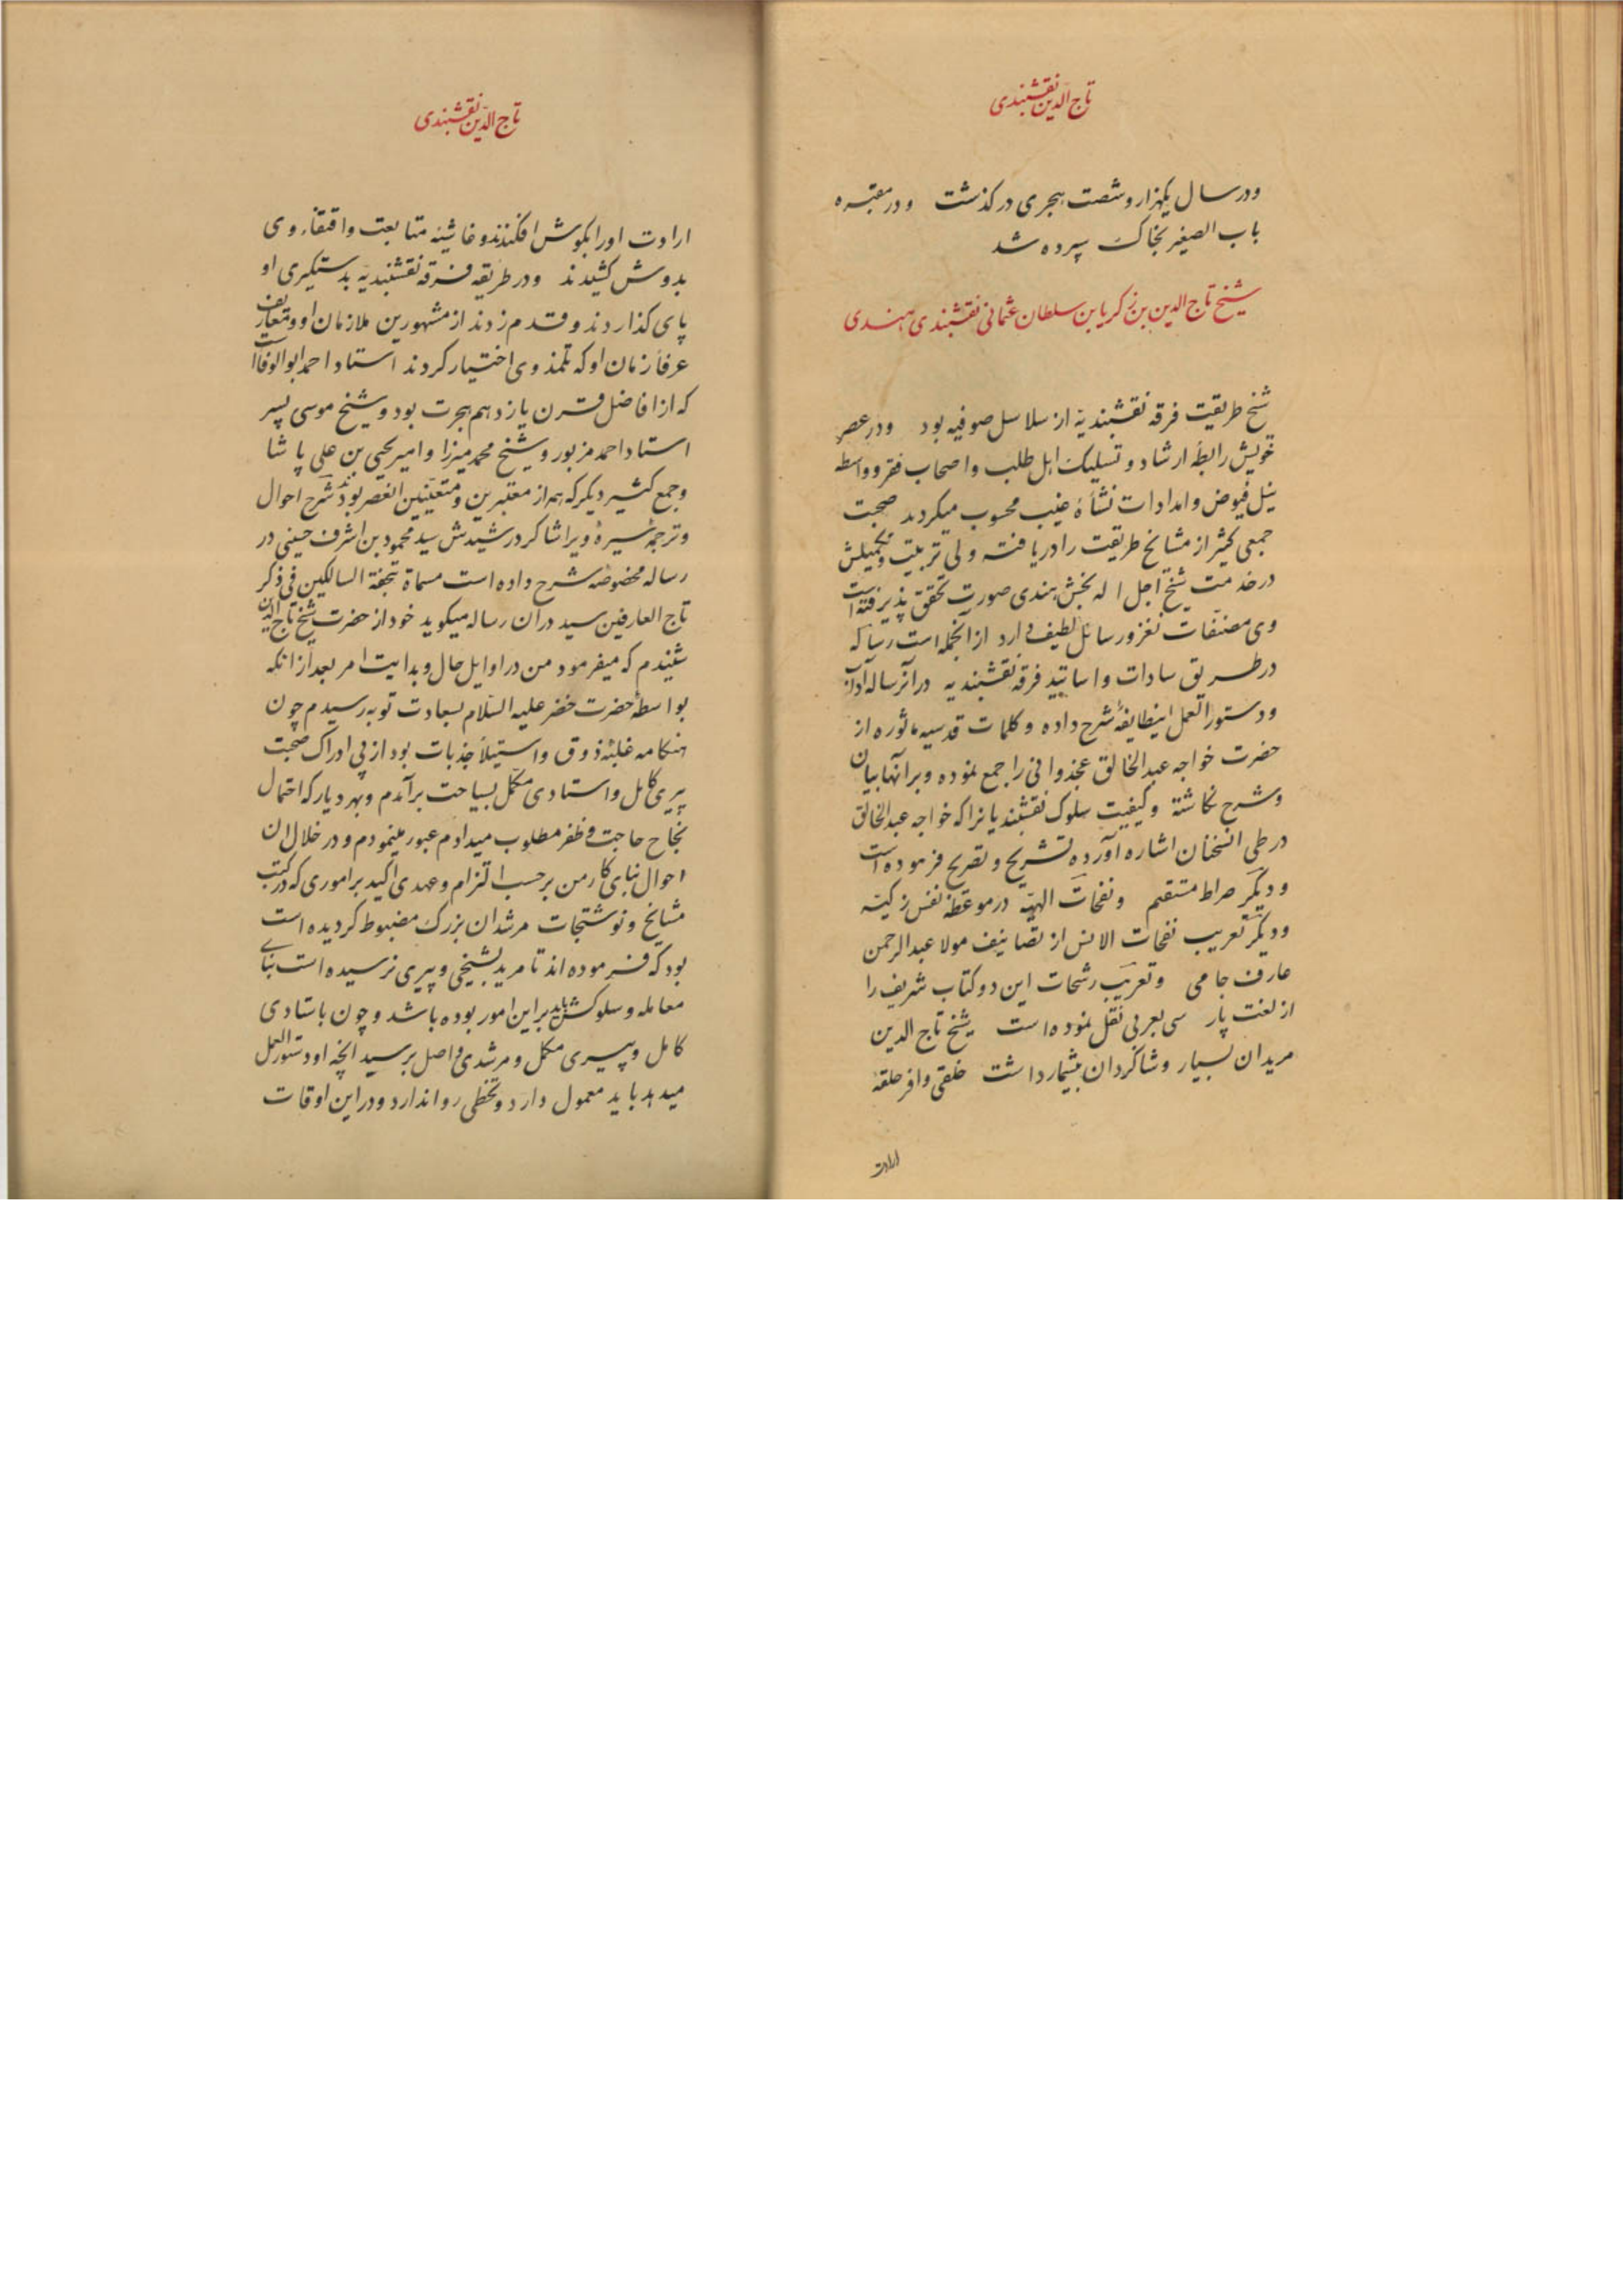 تاج الدین نقشبندی
ودر سال یکهزار وشصت هجری در کذشت ودر مقبره
باب الصغیر بخاک سپرده شد
شیخ تاج الدین بن زکریا بن سلطان عثمانی نقشبندی هندی
شیخ طریقت فرقه نقشبندیه از سلاسل صوفیه بود ودر عصر
خویش رابطهٔ ارشاد وتسلیک اهل طلب واصحاب فقر وواسطه
نیل فیوض وامدادات نشأهٔ غیب محسوب میکردید صحبت
جمعی کثیر از مشایخ طریقت را دریافته ولی تربیت وتکمیلش
در خدمت شیخ اجل اله بخش هندی صورت تحقق پذیرفته است
وی مصنفات نغز ورسائل لطیف دارد از آنجمله است رساله
در طریق سادات واساتید فرقه نقشبندیه در آنرساله آداب
ودستور العمل اینطایفه شرح داده وکلمات قدسیه ماثوره از
حضرت خواجه عبدالخالق عجذوانی را جمع نموده وبر آنها بیان
وشرح نکاشته وکیفیت سلوک نقشبندیانرا که خواجه عبدالخالق
در طی آنسخنان اشاره آورده تشریح وتصریح فرموده است
ودیکر صراط مستقیم ونفحات الهیه در موعظه نفس زکیه
ودیکر تعریب نفحات الانس از تصانیف مولا عبدالرحمن
عارف جامی وتعریب رشحات این دو کتاب شریف را
از لغت پارسی بعربی نقل نموده است شیخ تاج الدین
مریدان بسیار وشاکردان بیشمار داشت خلقی وافر حلقه
ارادت
تاج الدین نقشبندی
ارادت او را بکوش افکندند وغاشیه متابعت واقتفاء وی
بدوش کشیدند ودر طریقه فرقه نقشبندیه بدستکیری او
پای کذاردند وقدم زدند از مشهورین ملازمان او ومتعارف
عرفآ زمان او که تلمذ وی اختیار کردند استاد احمد ابوالوفا است
که از افاضل قرن یازدهم هجرت بود وشیخ موسی پسر
استاد احمد مزبور وشیخ محمد میرزا وامیر یحیی بن علی پاشا
وجمع کثیر دیکر که هم از معتبرین ومتعینین انعصر بودند شرح احوال
وترجمهٔ سیرهٔ ویرا شاکرد رشیدش سید محمود بن اشرف حسینی در
رساله مخصوصه شرح داده است مسماة بتحفة السالکین فی ذکر
تاج العارفین سید در ان رساله میکوید خود از حضرت شیخ تاج الدین
شنیدم که میفرمود من در اوایل حال وبدایت امر بعد از انکه
بواسطهٔ حضرت خضر علیه السلام بسعادت توبه رسیدم چون
هنکامه غلبهٔ ذوق واستیلآ جذبات بود از پی ادراک صحبت
پیری کامل واستادی مکمل بسیاحت برآمدم وبهر دیار که احتمال
نجاح حاجت وظفر مطلوب میدادم عبور مینمودم ودر خلال ان
احوال بنای کار من برحسب التزام وعهدی اکید بر اموری که در کتب
مشایخ ونوشتجات مرشدان بزرک مضبوط کردیده است
بود که فرموده اند تا مرید بشیخی وپیری نرسیده است بنای
معامله وسلوکش باید بر این امور بوده باشد وچون باستادی
کامل وپیری مکمل ومرشدی واصل برسید انچه او دستور العمل
میدهد باید معمول دارد وتخطی روا ندارد ودر این اوقات